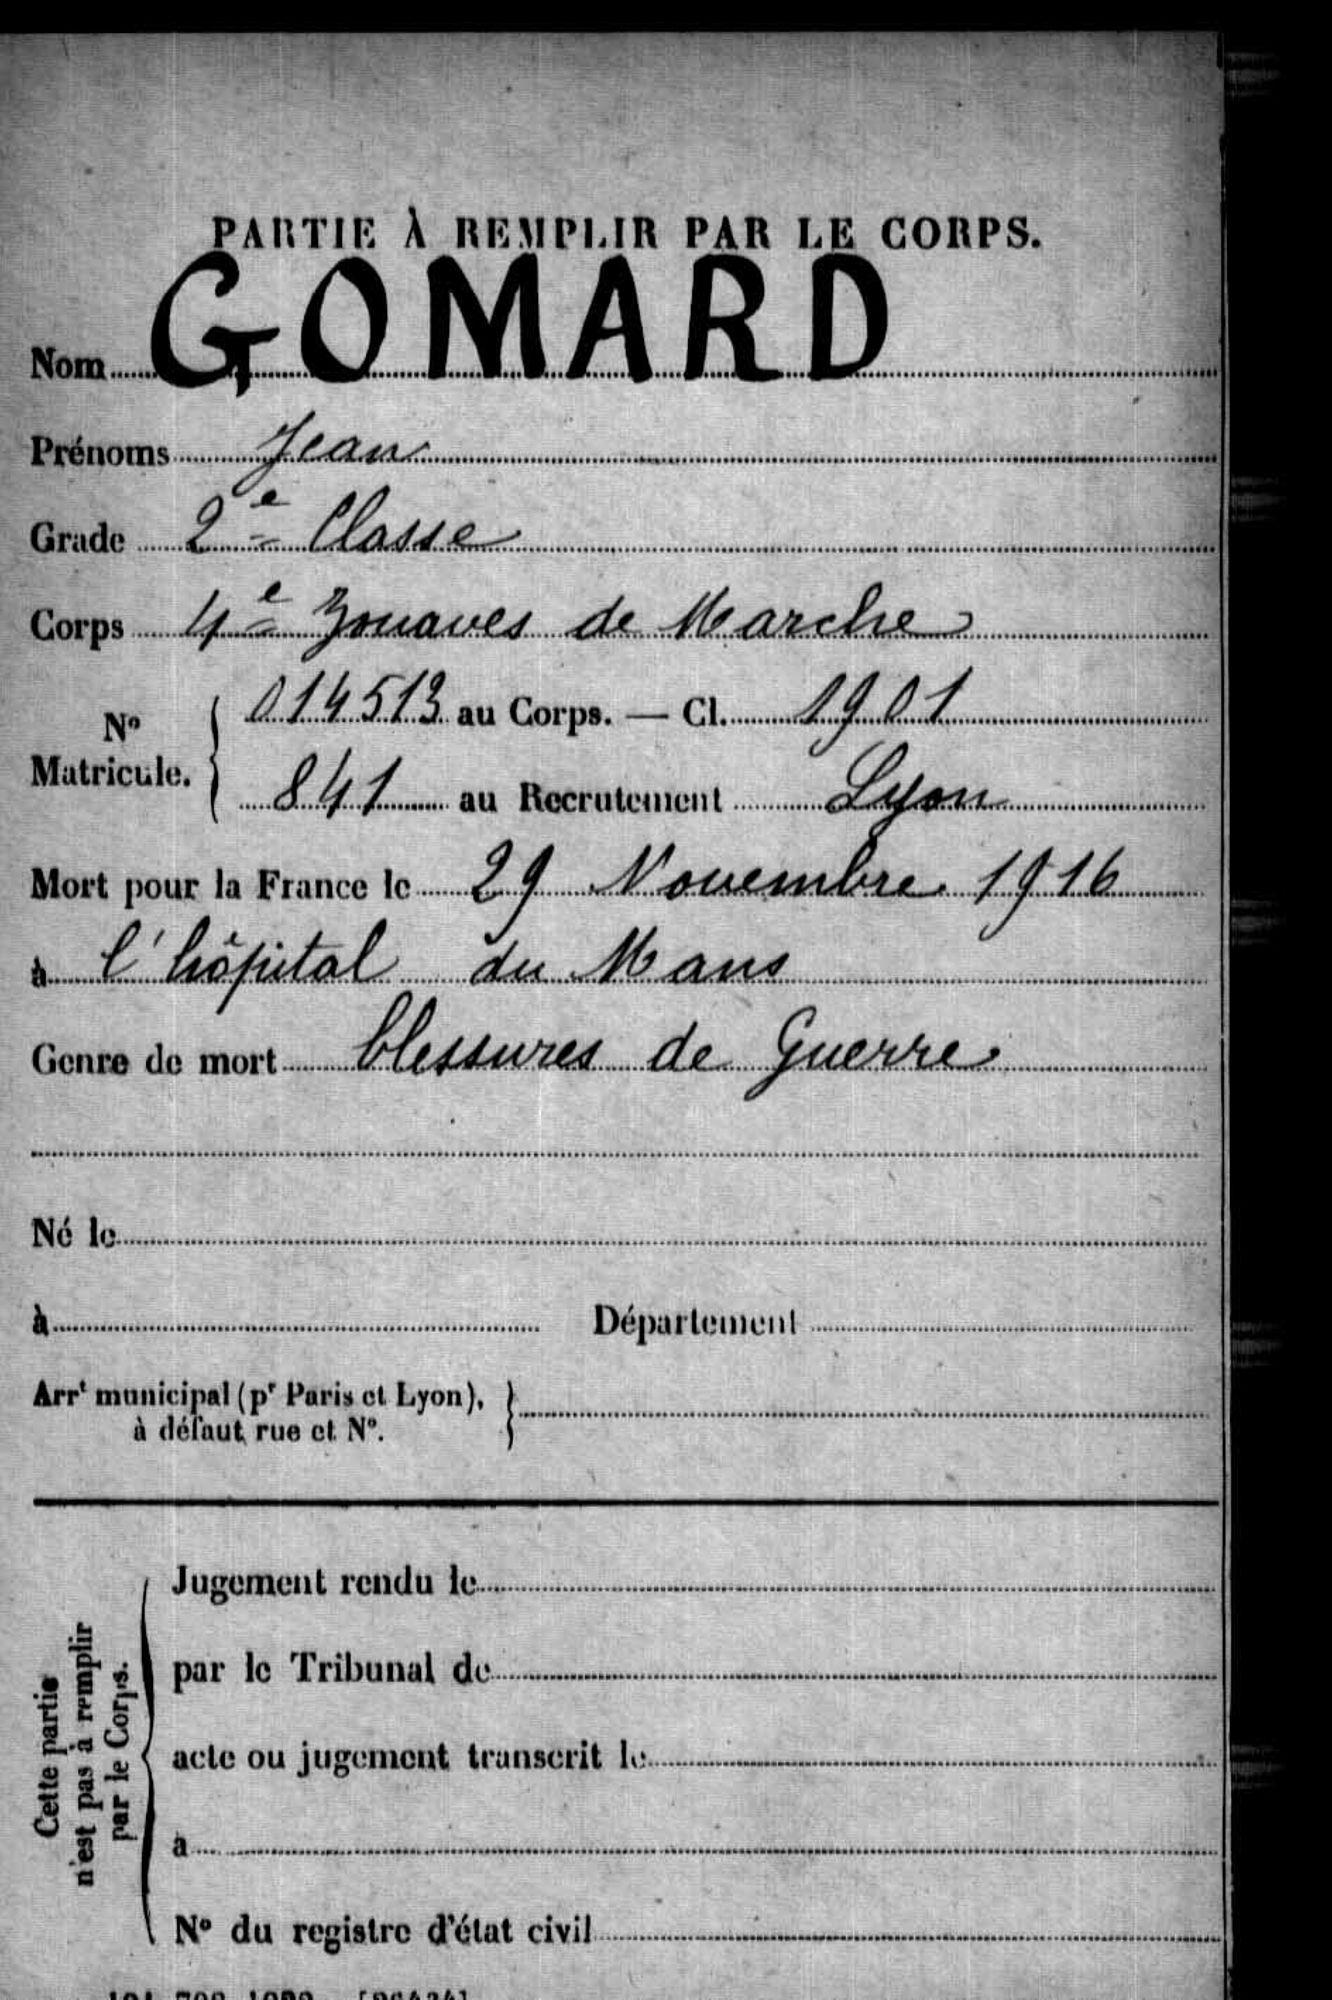 PARTIE À REMPLIR PAR LE CORPS.
Nom GOMARD
Prénoms Jean
Grade 2e Classe
Corps 4e Zouaves de Marche
No Matricule. { 014513 au Corps. — Cl. 1901
841 au Recrutement Lyon
Mort pour la France le 29 Novembre 1916
à l'hôpital du Mans
Genre de mort blessures de Guerre
Né le
à Département
Arrt municipal (pr Paris et Lyon), }
à défaut rue et No.
Cette partie
n'est pas à remplir
par le Corps.
Jugement rendu le
par le Tribunal de
acte ou jugement transcrit le
à
No du registre d'état civil